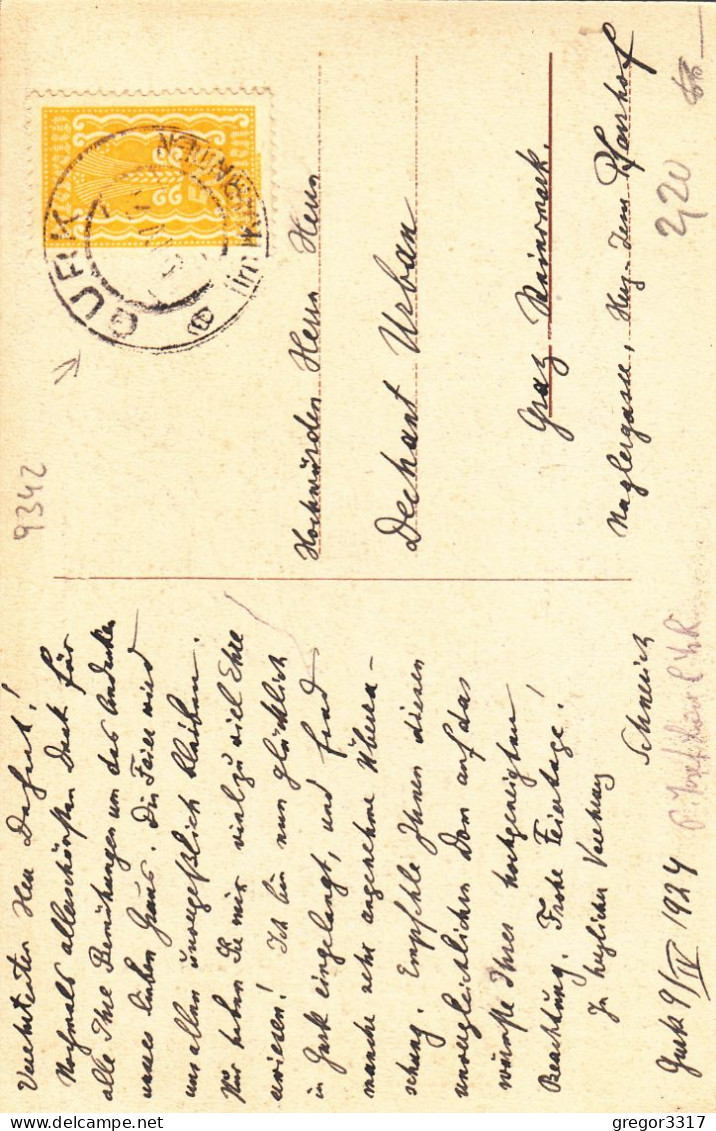 Verehrtester Herr Dechant!
Nochmals allerschönsten Dank für
alle Ihre Bemühungen um das Andenken
unseres lieben Hans. Die Feier wird
uns allen unvergeßlich bleiben.
Nur haben Sie mir viel zu viel Ehre
erwiesen! Ich bin nun glücklich
in Gurk eingelangt, und fand
manche sehr angenehme Überra-
schung. Empfehle Ihnen diesen
unvergleichlichen Dom auf das
wärmste Ihres hochgeneigten
Beachtung. Frohe Feiertage!
In herzlicher Verehrung
Schneirich
Gurk 9/IV 1924
9342
GURK
KÄRNTEN
Hochwürden Herrn Herrn
Dechant Urban
Graz Steiermark.
Naglergasse, Hlg. Pfarrhof
2,20
gregor3317